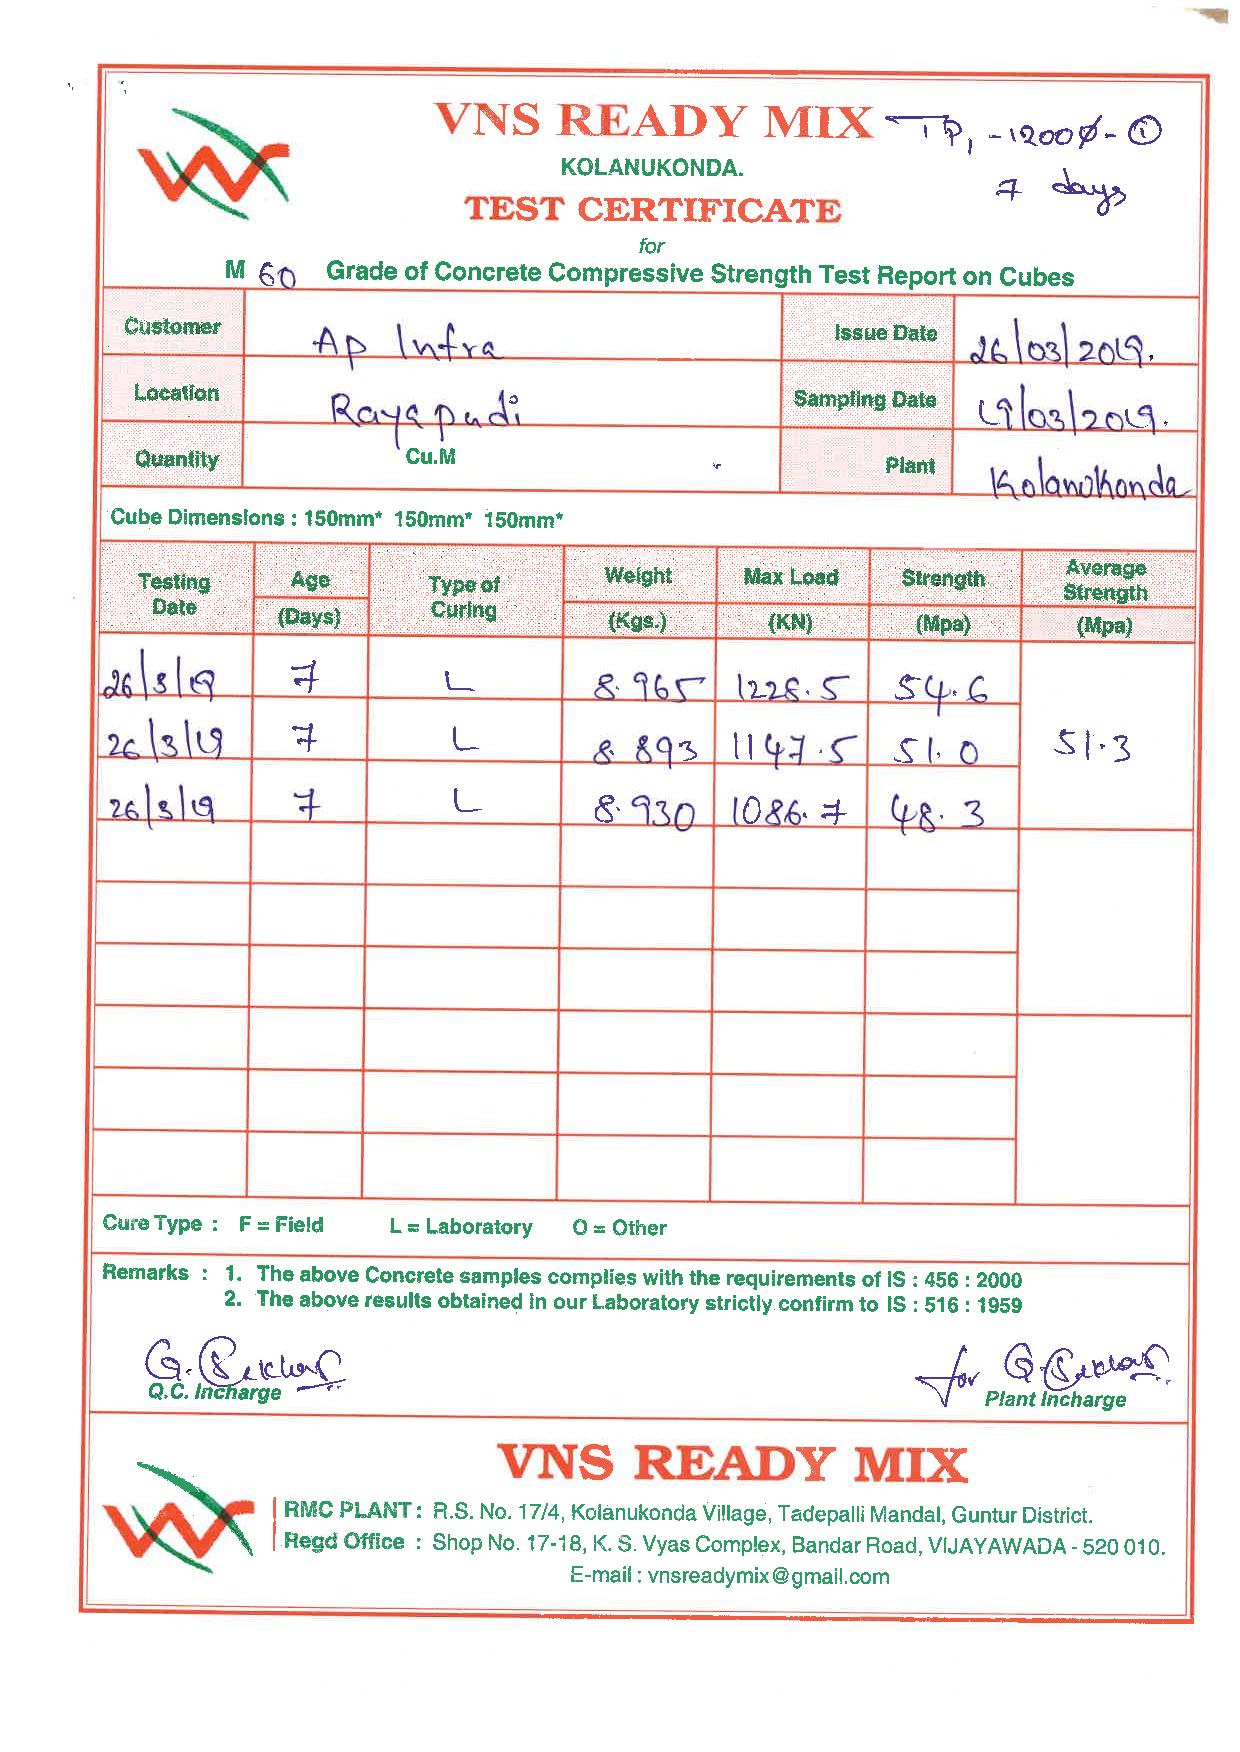 VNS READY MIX TP, -1200Ø- ①
KOLANUKONDA.
7 days
TEST CERTIFICATE
for
M 60 Grade of Concrete Compressive Strength Test Report on Cubes
Customer Ap Infra Issue Date 26/03/2019.
Location Rayapudi Sampling Date 19/03/2019.
Quantity Cu.M Plant Kolanukonda
Cube Dimensions : 150mm* 150mm* 150mm*
Testing Date Age (Days) Type of Curing Weight (Kgs.) Max Load (KN) Strength (Mpa) Average Strength (Mpa)
26/3/19 7 L 8.965 1228.5 54.6
26/3/19 7 L 8.893 1147.5 51.0 51.3
26/3/19 7 L 8.930 1086.7 48.3
Cure Type : F = Field L = Laboratory O = Other
Remarks : 1. The above Concrete samples complies with the requirements of IS : 456 : 2000
2. The above results obtained in our Laboratory strictly confirm to IS : 516 : 1959
for
Q.C. Incharge Plant Incharge
VNS READY MIX
RMC PLANT : R.S. No. 17/4, Kolanukonda Village, Tadepalli Mandal, Guntur District.
Regd Office : Shop No. 17-18, K. S. Vyas Complex, Bandar Road, VIJAYAWADA - 520 010.
E-mail : vnsreadymix@gmail.com